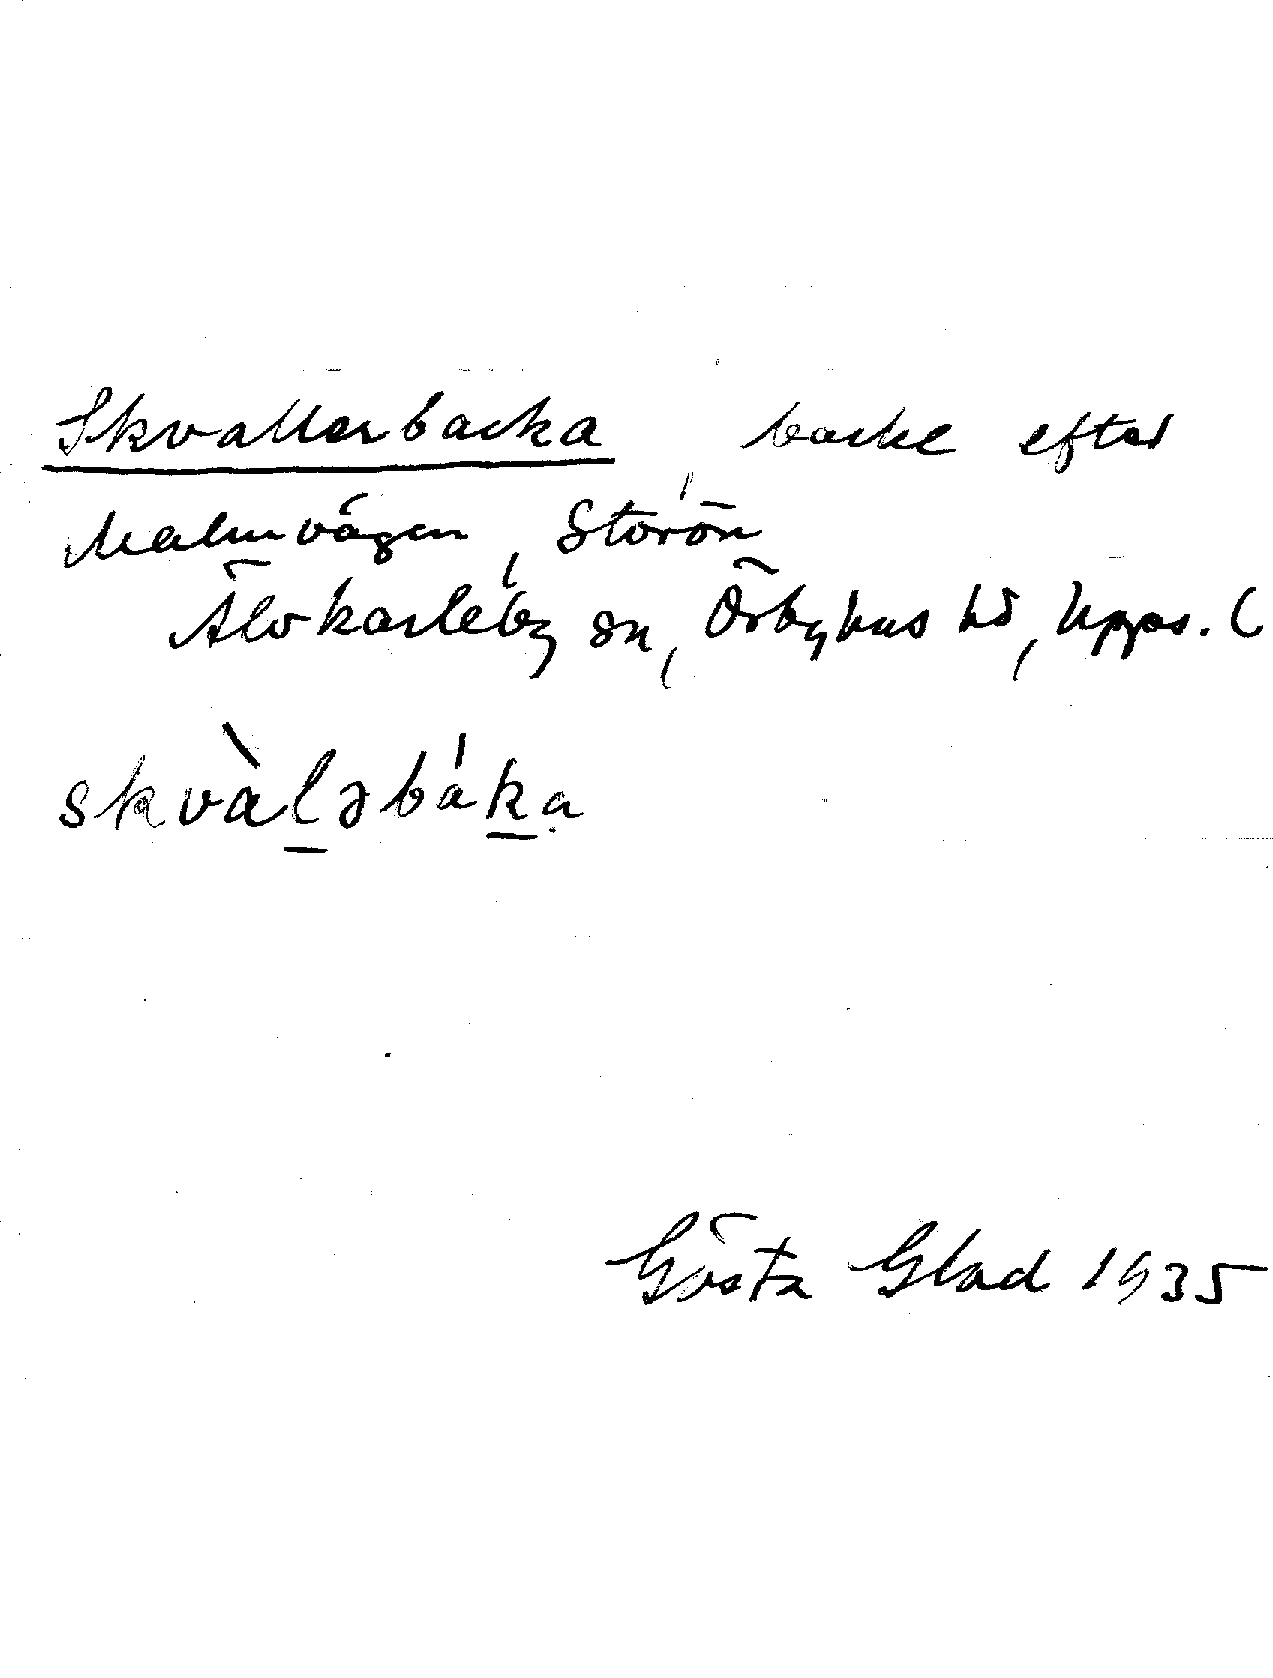 Skvallerbacka, backe efter
Malmvägen, Storön
Älvkarleby sn, Örbyhus hd, Upps. l
skvàləbáka
Gösta Glad 1935